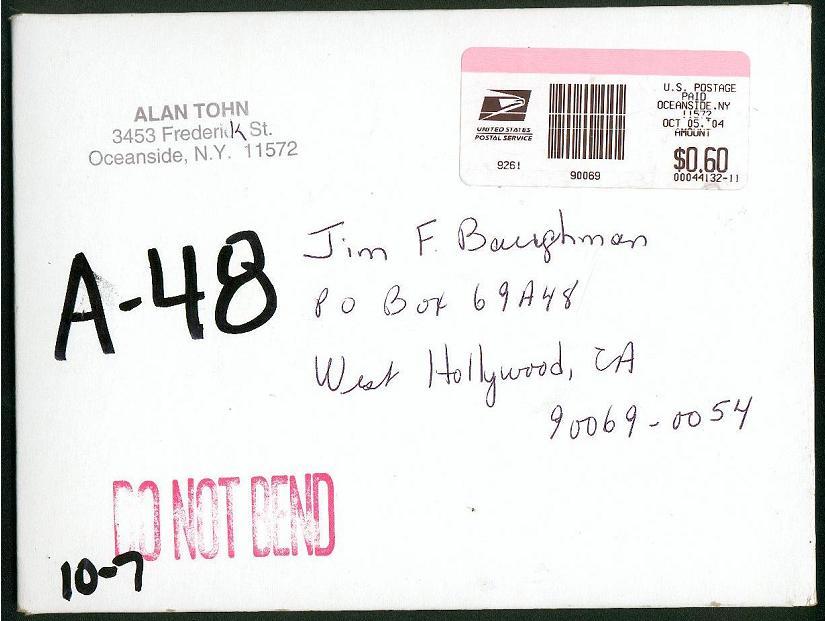 ALAN TOHN
3453 Frederick St.
Oceanside, N.Y. 11572
UNITED STATES
POSTAL SERVICE
9261
90069
U.S. POSTAGE
PAID
OCEANSIDE.NY
11572
OCT 05.'04
AMOUNT
$0.60
00044132-11
A-48
Jim F. Baughman
PO Box 69A48
West Hollywood, CA
90069-0054
DO NOT BEND
10-7